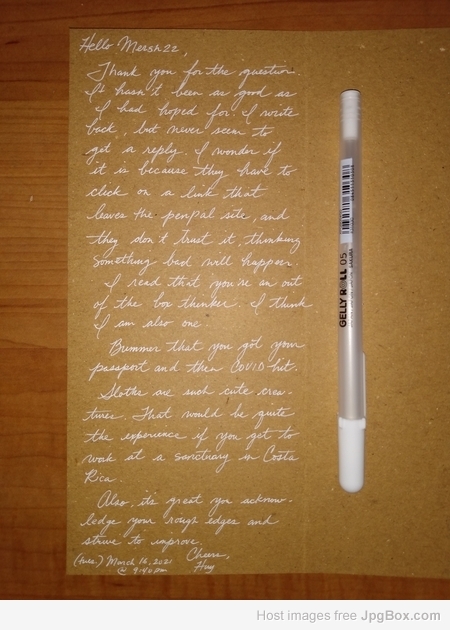 Hello Mersh22,
Thank you for the question.
It hasn't been as good as
I had hoped for. I write
back, but never seem to
get a reply. I wonder if
it is because they have to
click on a link that
leaves the penpal site, and
they don't trust it, thinking
something bad will happen.
I read that you're an out
of the box thinker. I think
I am also one.
Bummer that you got your
passport and then COVID hit.
Sloths are such cute crea-
tures. That would be quite
the experience if you get to
work at a sanctuary in Costa
Rica.
Also, its great you acknow-
ledge your rough edges and
strive to improve.
Cheers,
(tues.) March 16, 2021
@ 9:40 pm
GELLY ROLL 05
Host images free JpgBox.com